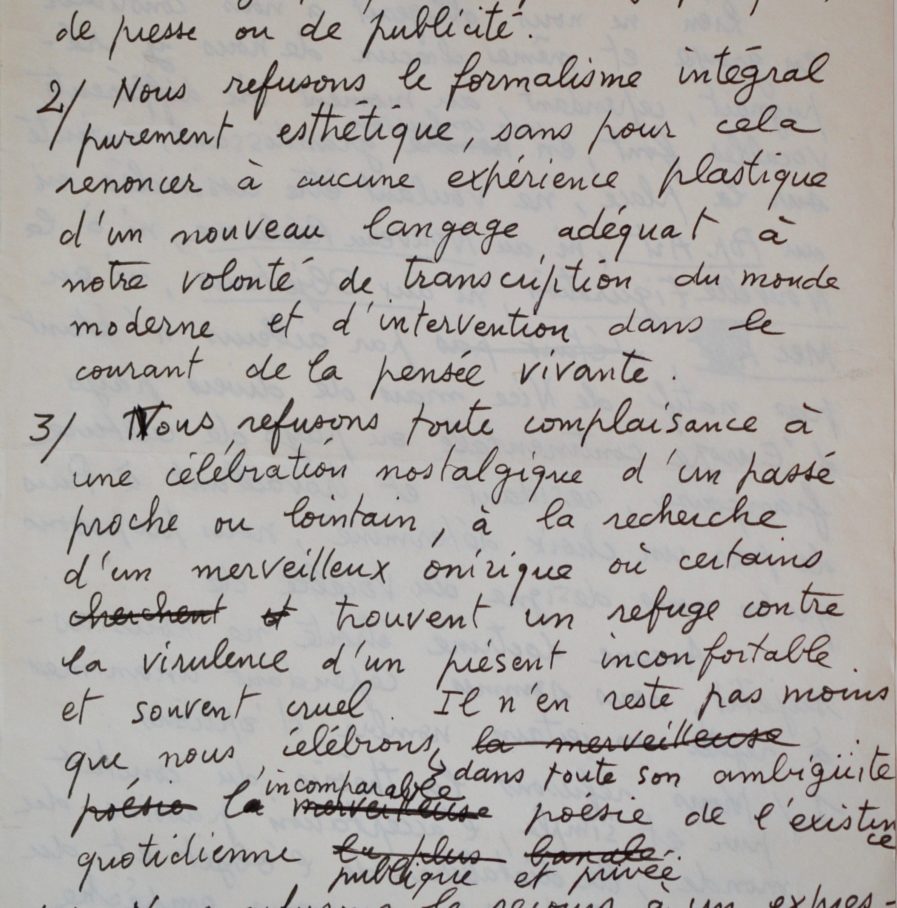 de presse ou de publicité.
2/ Nous refusons le formalisme intégral
purement esthétique, sans pour cela
renoncer à aucune expérience plastique
d'un nouveau langage adéquat à
notre volonté de transcription du monde
moderne et d'intervention dans le
courant de la pensée vivante.
3/ Nous refusons toute complaisance à
une célébration nostalgique d'un passé
proche ou lointain, à la recherche
d'un merveilleux onirique où certains
cherchent et trouvent un refuge contre
la virulence d'un présent inconfortable
et souvent cruel. Il n'en reste pas moins
que nous célébrons, la merveilleuse
dans toute son ambigüité
incomparable
poésie la merveilleuse poésie de l'existen
ce
quotidienne la plus banale.
publique et privée